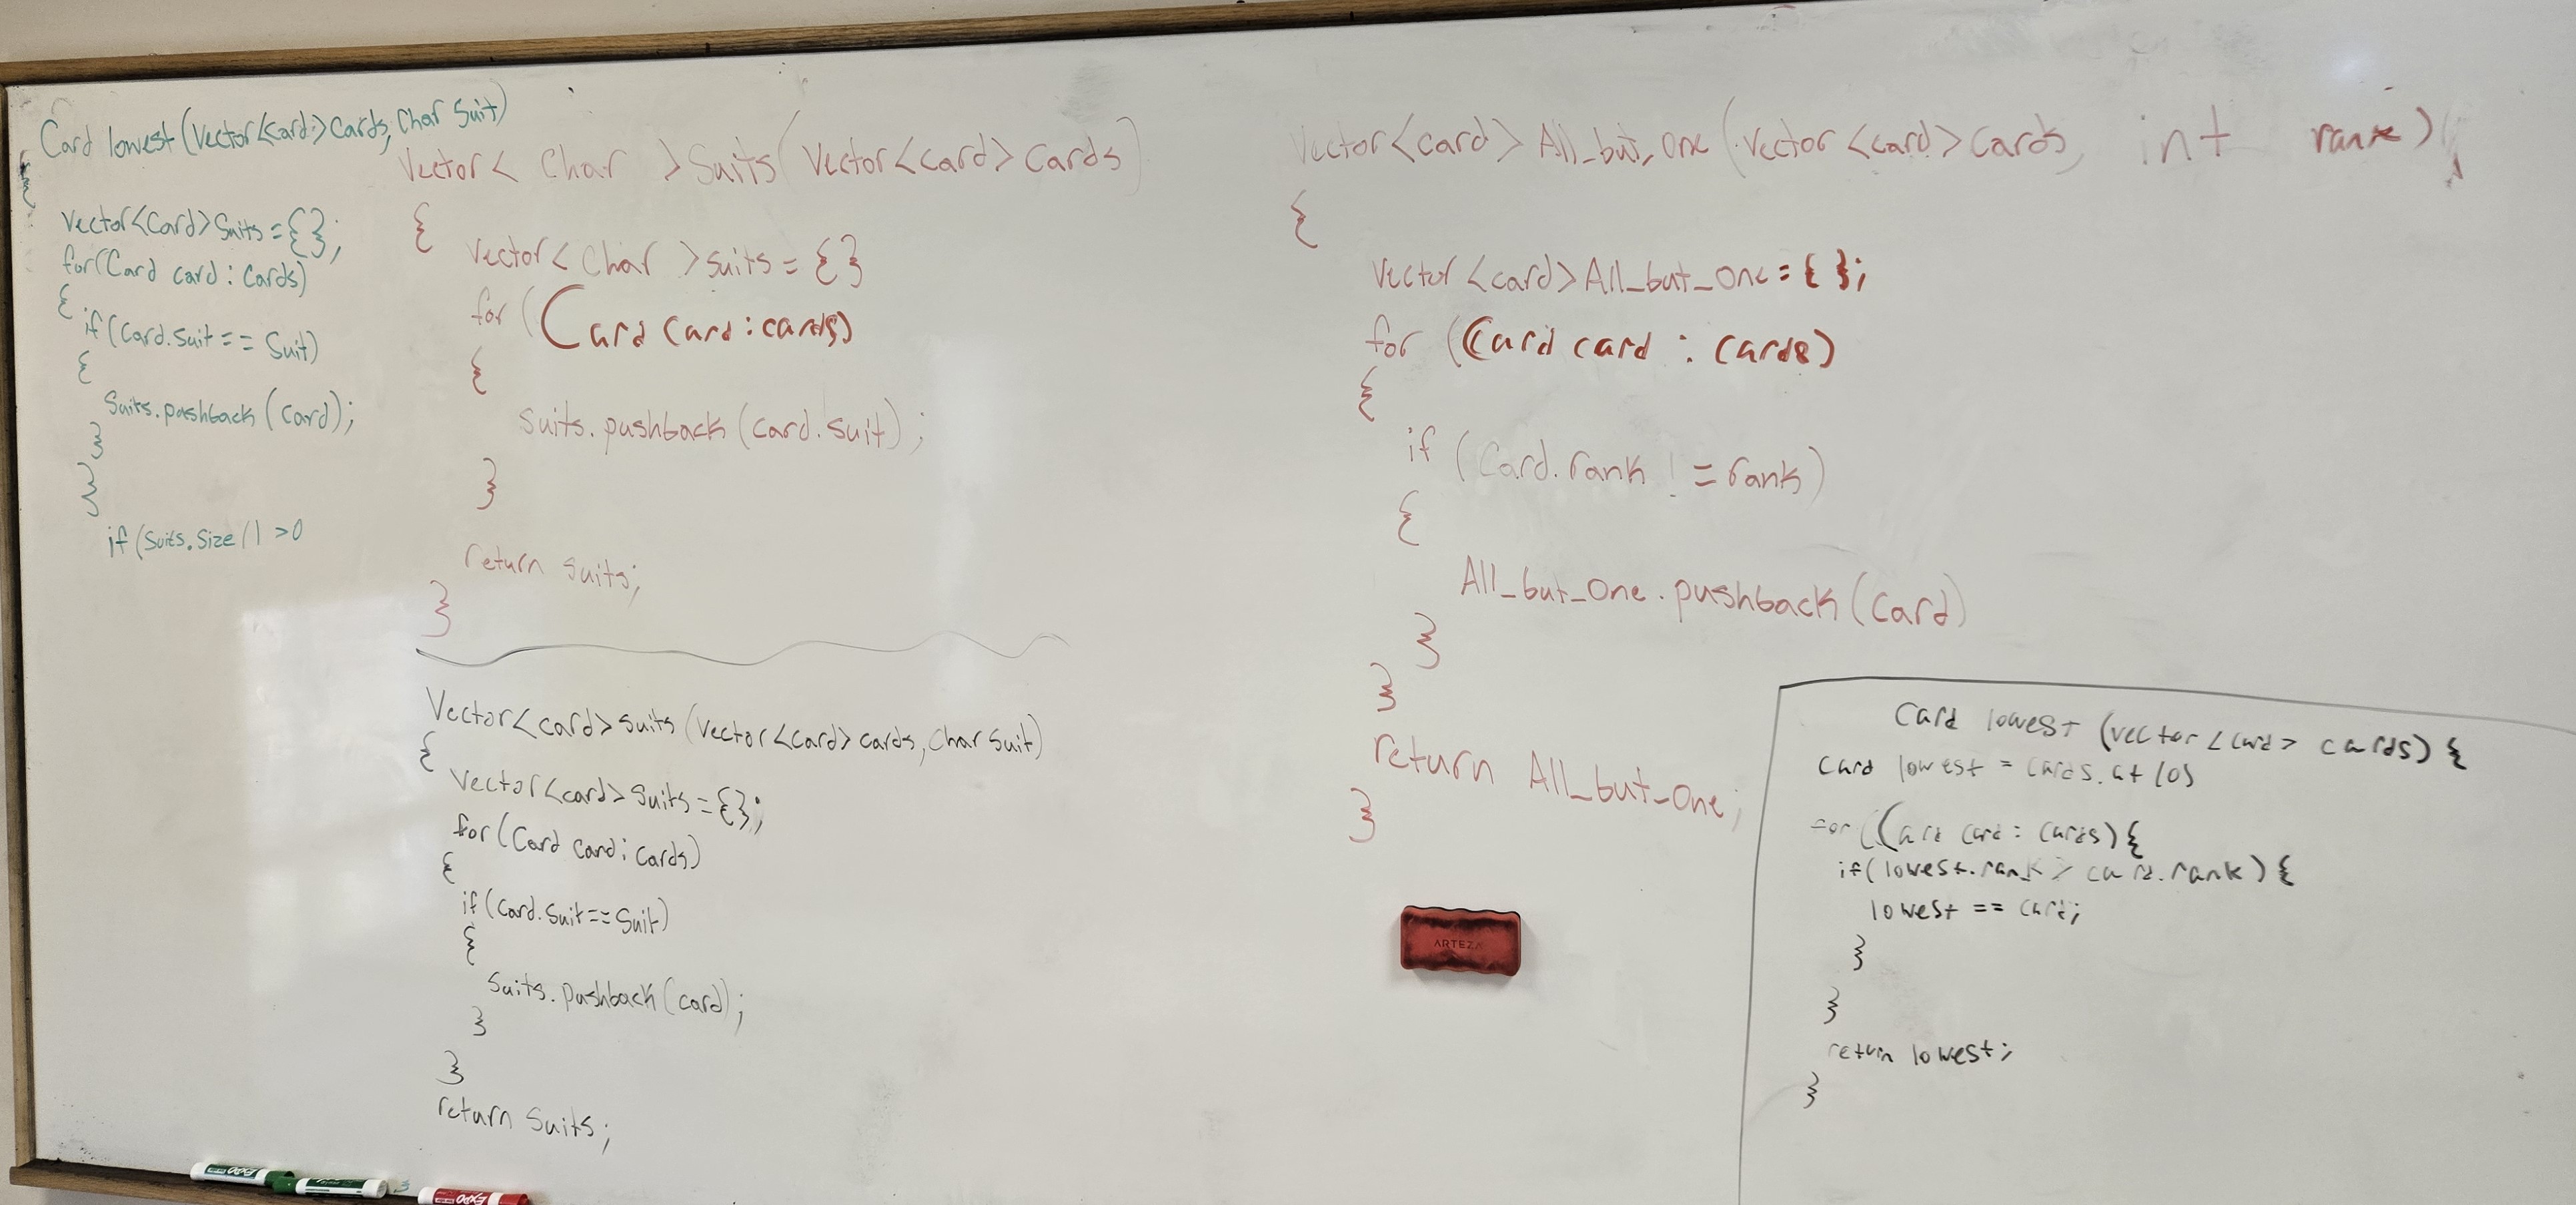 Card lowest(Vector<Card>Cards, Char Suit)
{
vector<Card>Suits={};
for(Card card : Cards)
{
if(Card.Suit== Suit)
{
Suits.pushback(Card);
}
}
if(Suits.Size() >0
Vector< Char >Suits(Vector<card> Cards)
{
Vector< Char >suits = {}
for (Card Card : cards)
{
Suits.pushback(Card.Suit);
}
return suits;
}
Vector<card> suits(Vector<card> cards, Char Suit)
{
Vector<card> suits={};
for(Card Card : Cards)
{
if(Card.Suit==Suit)
{
Suits.pushback(card);
}
}
return Suits;
Vector<card> All_but_One(Vector<card>Cards, int rank)
{
Vector<card>All_but_One={ };
for (Card card : Cards)
{
if (Card.rank != rank)
{
All_but_One.pushback(Card)
}
}
return All_but_One;
}
ARTEZA
Card lowest (vector<card> cards) {
Card lowest = cards.at(0)
for (Card card : Cards) {
if(lowest.rank > card.rank) {
lowest == card;
}
}
return lowest;
}
EXPO
EXPO